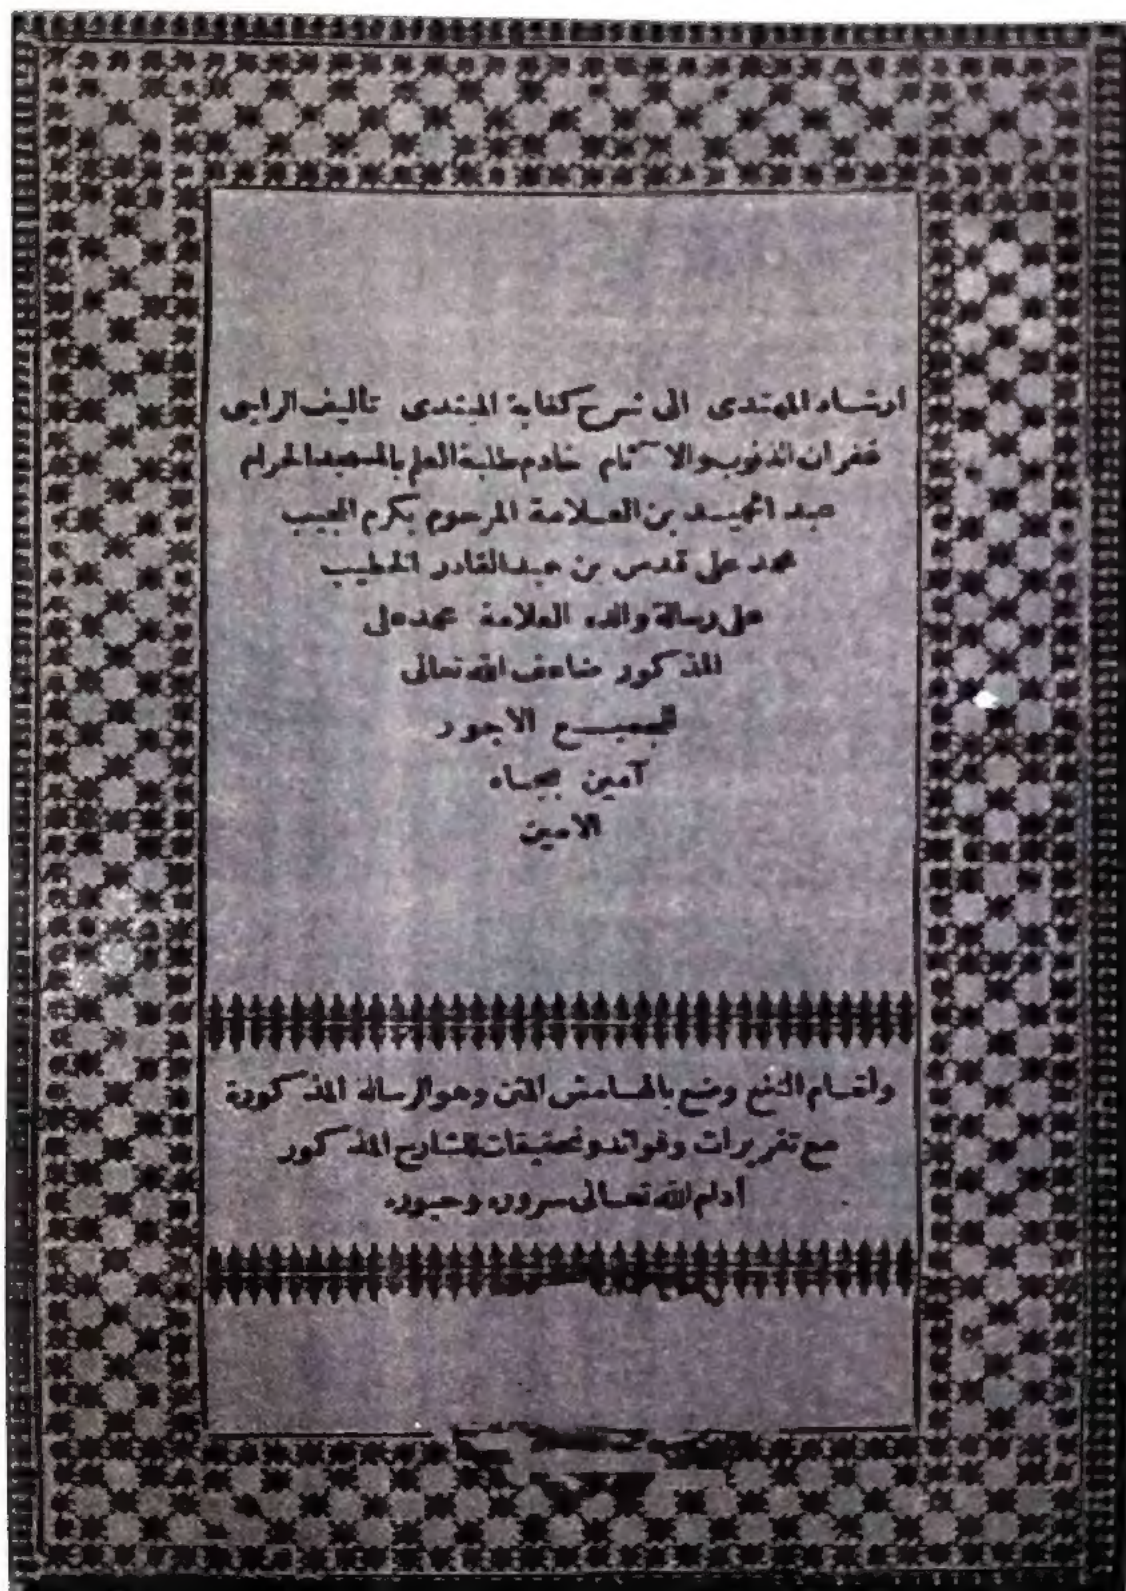 ارشاد المهتدى الى شرح كفاية المبتدى تأليف الراجى
غفران الذنوب والا ثام خادم طلبة العلم بالمسجد الحرام
عبد الحميد بن العلامة المرحوم بكرم المجيب
محمد على قدس بن عبد القادر الخطيب
على رسالة والده العلامة محمد على
المذكور ضاعف الله تعالى
للجميع الاجور
آمين بجاه
الامين
ولتمام النفع وضع بالهامش المتن وهو الرسالة المذكورة
مع تقريرات وفوائد وتحقيقات للشارح المذكور
أدام الله تعالى سروره وحبوره